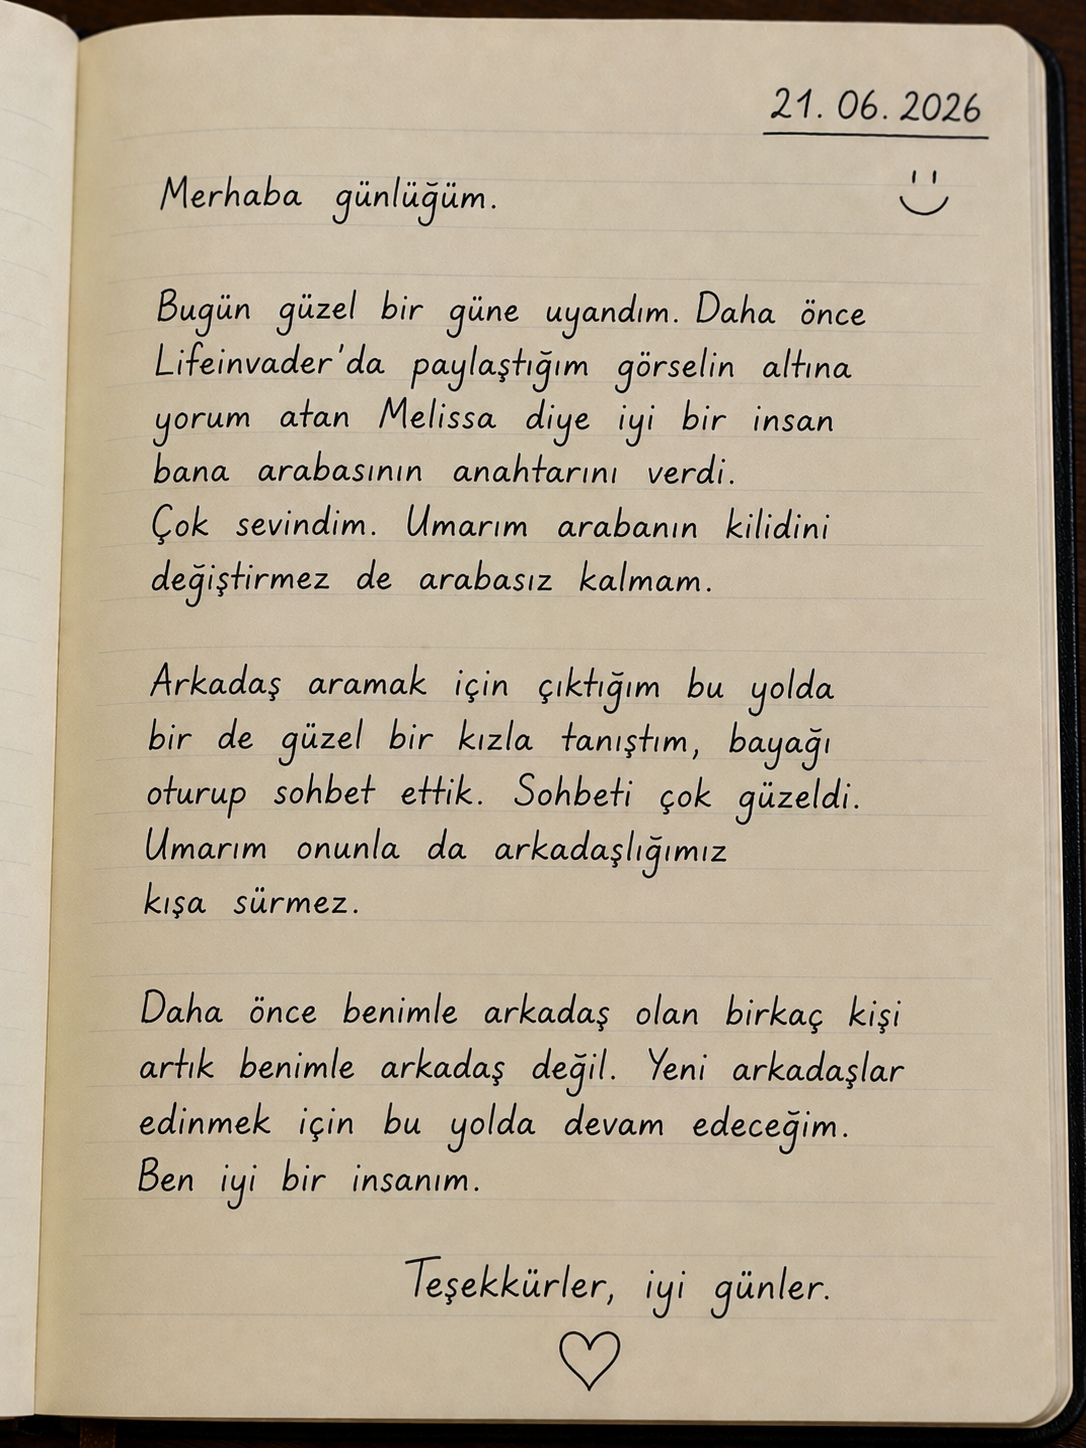 21. 06. 2026
Merhaba günlüğüm.
Bugün güzel bir güne uyandım. Daha önce
Lifeinvader'da paylaştığım görselin altına
yorum atan Melissa diye iyi bir insan
bana arabasının anahtarını verdi.
Çok sevindim. Umarım arabanın kilidini
değiştirmez de arabasız kalmam.
Arkadaş aramak için çıktığım bu yolda
bir de güzel bir kızla tanıştım, bayağı
oturup sohbet ettik. Sohbeti çok güzeldi.
Umarım onunla da arkadaşlığımız
kısa sürmez.
Daha önce benimle arkadaş olan birkaç kişi
artık benimle arkadaş değil. Yeni arkadaşlar
edinmek için bu yolda devam edeceğim.
Ben iyi bir insanım.
Teşekkürler, iyi günler.